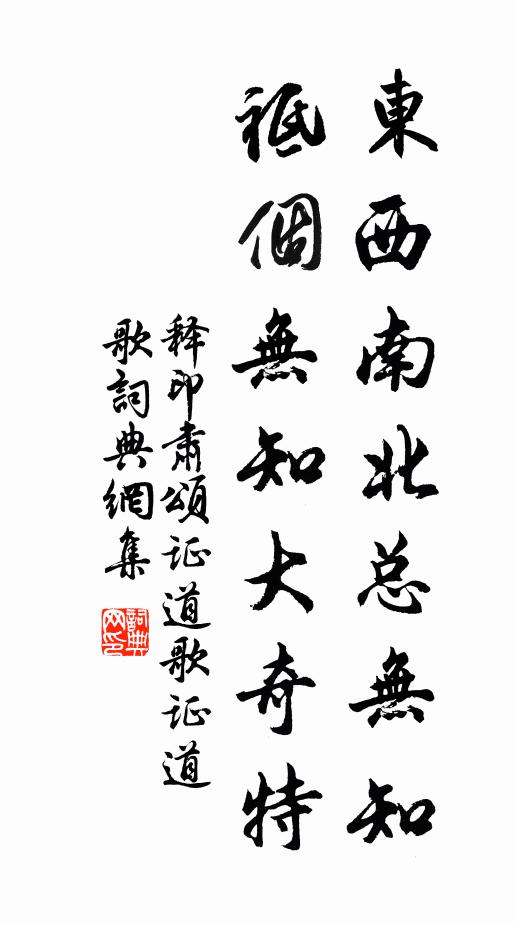 東西南北总無知
祗個無知大奇特
释印肃頌证道歌证道
歌詞典網集
詞典